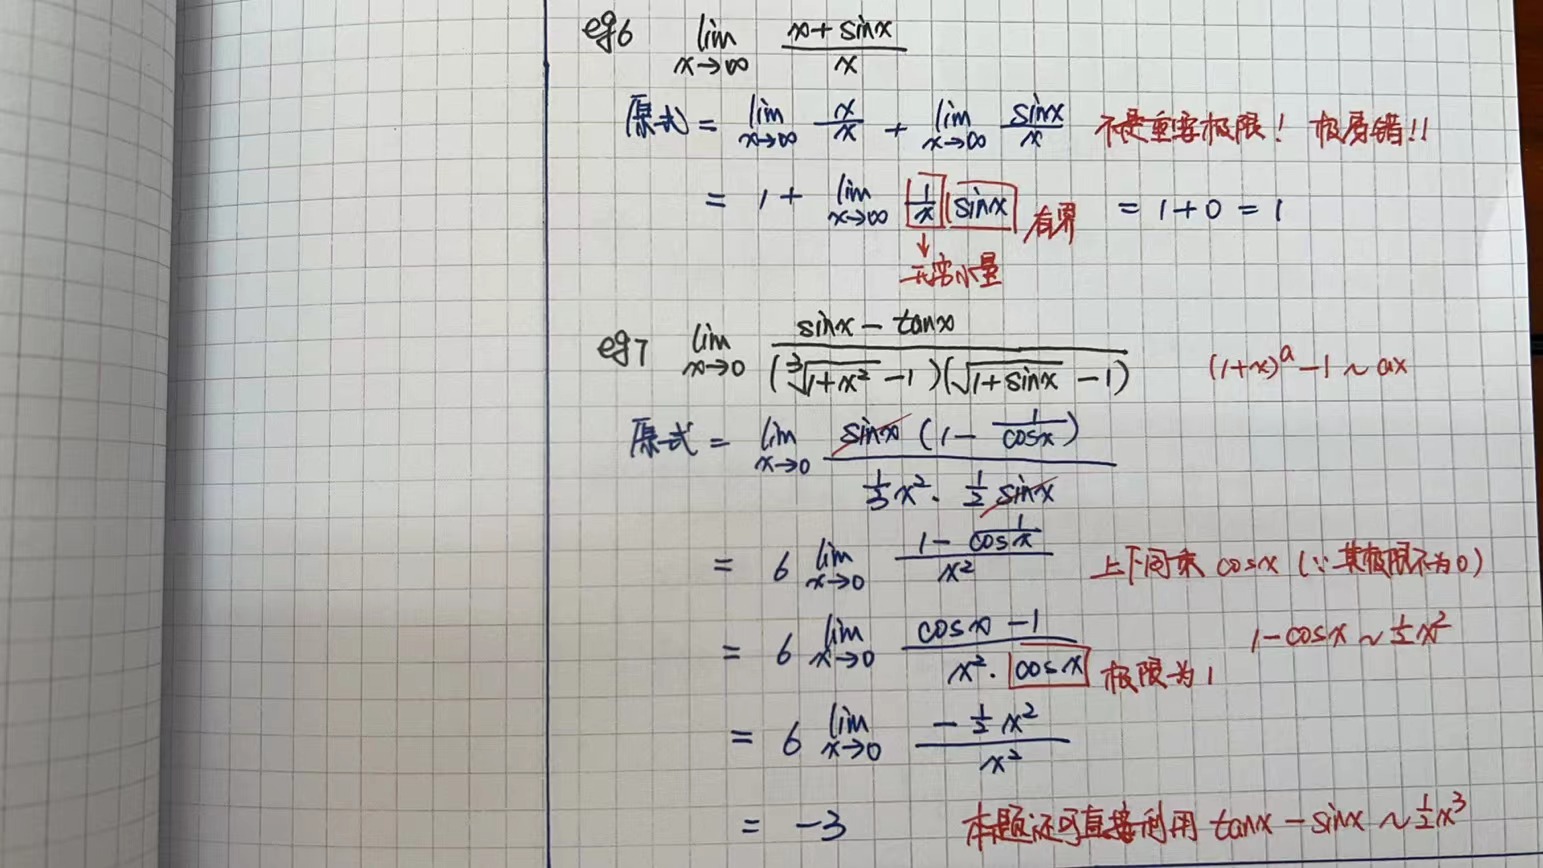 eg6 lim x→∞ (x + sinx)/x
原式 = lim x→∞ x/x + lim x→∞ sinx/x 不是重要极限! 极易错!!
= 1 + lim x→∞ 1/x sinx 有界 = 1 + 0 = 1
↓
无穷小量
eg7 lim x→0 (sinx - tanx)/((∛(1+x²) - 1)(√(1+sinx) - 1)) (1+x)^a - 1 ~ ax
原式 = lim x→0 (sinx (1 - 1/cosx))/(1/3 x² · 1/2 sinx)
= 6 lim x→0 (1 - 1/cosx)/x² 上下同乘 cosx (∵其极限不为0)
= 6 lim x→0 (cosx - 1)/(x² · cosx) 极限为1 1 - cosx ~ 1/2 x²
= 6 lim x→0 (- 1/2 x²)/x²
= -3 本题还可直接利用 tanx - sinx ~ 1/2 x³